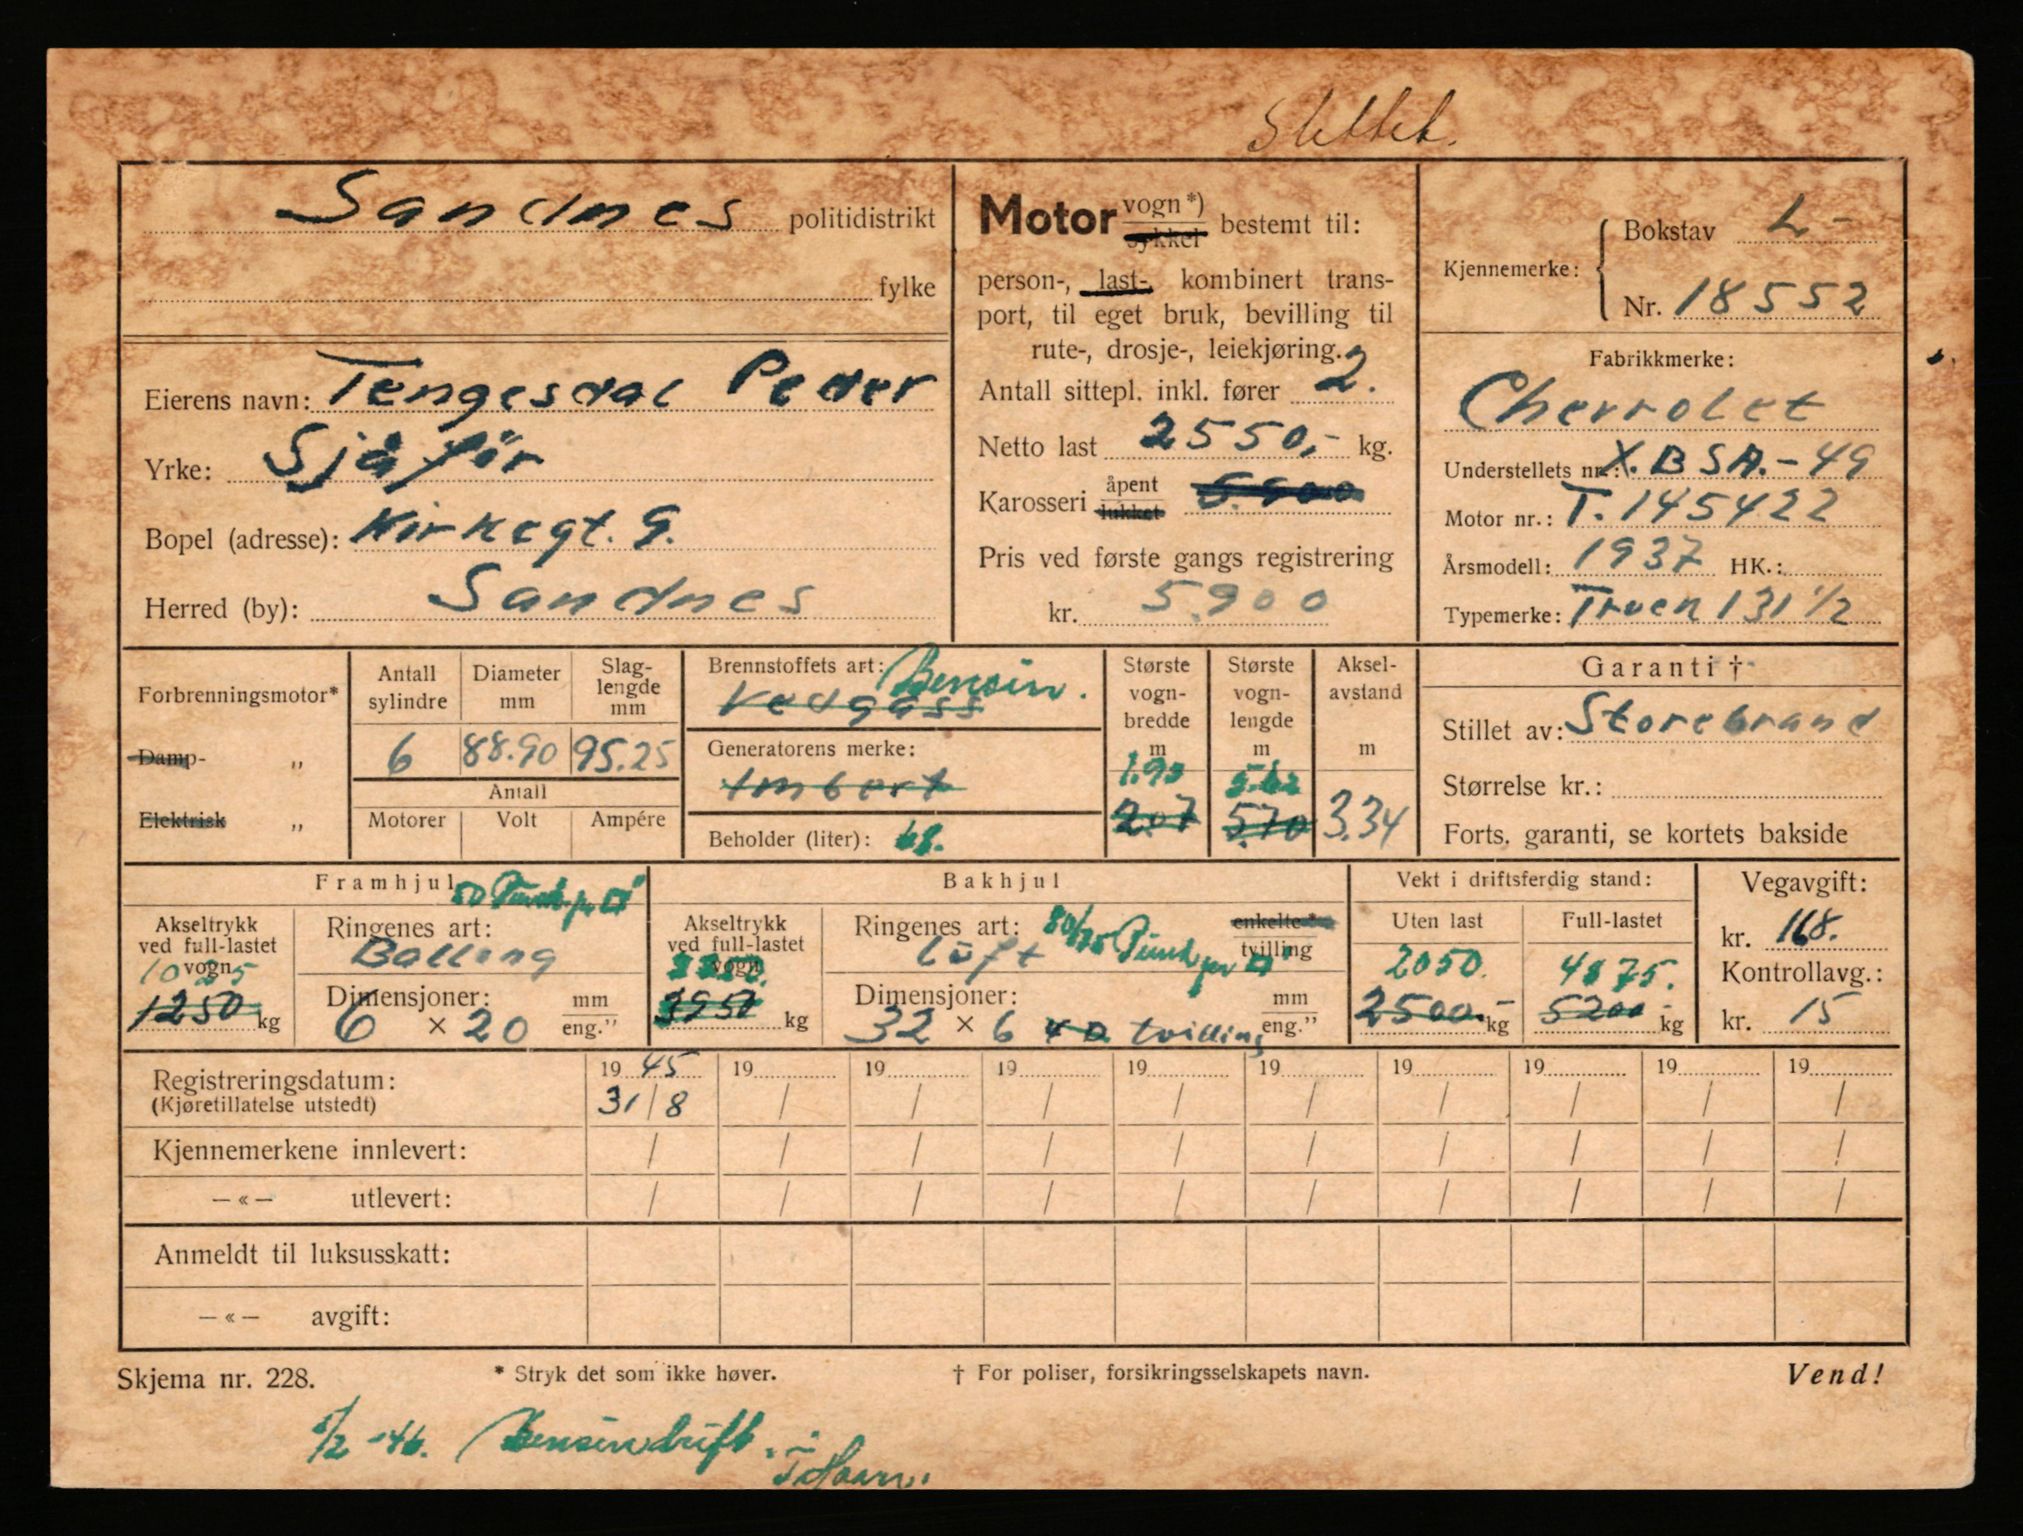 Slettet.
Sandnes politidistrikt
fylke
Eierens navn: Tengesdal Peder
Yrke: Sjåfør
Bopel (adresse): Kirkegt. 9.
Herred (by): Sandnes
Motor vogn*) sykkel bestemt til:
person-, last-, kombinert trans-
port, til eget bruk, bevilling til
rute-, drosje-, leiekjøring.
Antall sittepl. inkl. fører 2.
Netto last 2550,- kg.
Karosseri åpent lukket 5.900
Pris ved første gangs registrering
kr. 5.900
Kjennemerke: Bokstav L-
Nr. 18552
Fabrikkmerke:
Chevrolet
Understellets nr.: X.BSA.-49
Motor nr.: T.145422
Årsmodell: 1937 HK.:
Typemerke: Truck 131 1/2
Forbrenningsmotor*
Damp- „
Elektrisk „
Antall sylindre
Diameter mm
Slag-lengde mm
6 88.90 95.25
Antall
Motorer Volt Ampére
Brennstoffets art: Bensin.
Vedgass
Generatorens merke:
Imbert
Beholder (liter): 68.
Største vogn-bredde m
1.90
2.07
Største vogn-lengde m
5.62
5.70
Aksel-avstand m
3.34
Garanti †
Stillet av: Storebrand
Størrelse kr.:
Forts. garanti, se kortets bakside
Framhjul
Akseltrykk ved full-lastet vogn
1025
1250 kg
Ringenes art:
Ballong
Dimensjoner: mm
6 × 20 eng.”
Bakhjul
Akseltrykk ved full-lastet vogn
3950 kg
Ringenes art: enkelte*
luft 80/75 tvilling
Dimensjoner: mm
32 × 6 tvilling eng.”
Vekt i driftsferdig stand:
Uten last Full-lastet
2050. 4875.
2500.- kg 5200 - kg
Vegavgift:
kr. 168.
Kontrollavg.:
kr. 15
Registreringsdatum: 19 45 19 19 19 19 19 19 19 19 19
(Kjøretillatelse utstedt) 31/8 / / / / / / / / /
Kjennemerkene innlevert: / / / / / / / / / /
—«— utlevert: / / / / / / / / / /
Anmeldt til luksusskatt:
—«— avgift:
Skjema nr. 228. * Stryk det som ikke høver. † For poliser, forsikringsselskapets navn. Vend!
5/2-46. Bensindrift.